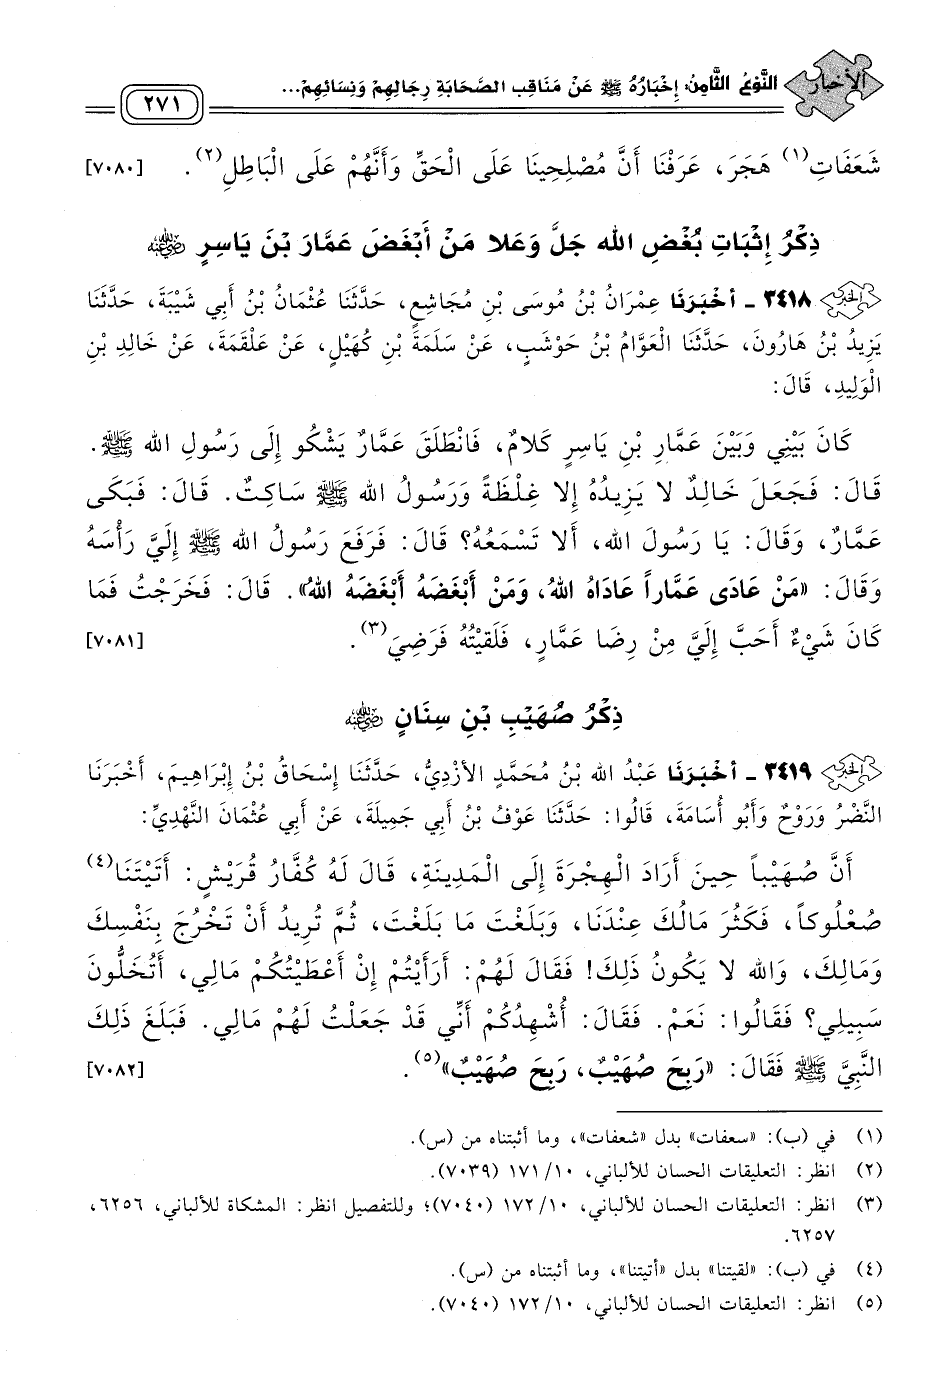 الأخبار
النَّوْعُ الثَّامِنُ: إِخْبَارُهُ ﷺ عَنْ مَنَاقِبِ الصَّحَابَةِ رِجَالِهِمْ وَنِسَائِهِمْ...
٢٧١
شَعَفَاتِ(١) هَجَرَ، عَرَفْنَا أَنَّ مُصْلِحِينَا عَلَى الْحَقِّ وَأَنَّهُمْ عَلَى الْبَاطِلِ(٢). [٧٠٨٠]
ذِكْرُ إِثْبَاتِ بُغْضِ الله جَلَّ وَعَلا مَنْ أَبْغَضَ عَمَّارَ بْنَ يَاسِرٍ رضي الله عنه
٣٤١٨ ـ أخْبَرَنَا عِمْرَانُ بْنُ مُوسَى بْنِ مُجَاشِعٍ، حَدَّثَنَا عُثْمَانُ بْنُ أَبِي شَيْبَةَ، حَدَّثَنَا
يَزِيدُ بْنُ هَارُونَ، حَدَّثَنَا الْعَوَّامُ بْنُ حَوْشَبٍ، عَنْ سَلَمَةَ بْنِ كُهَيْلٍ، عَنْ عَلْقَمَةَ، عَنْ خَالِدِ بْنِ
الْوَلِيدِ، قَالَ:
كَانَ بَيْنِي وَبَيْنَ عَمَّارِ بْنِ يَاسِرٍ كَلامٌ، فَانْطَلَقَ عَمَّارٌ يَشْكُو إِلَى رَسُولِ الله ﷺ.
قَالَ: فَجَعَلَ خَالِدٌ لا يَزِيدُهُ إِلا غِلْظَةً وَرَسُولُ الله ﷺ سَاكِتٌ. قَالَ: فَبَكَى
عَمَّارٌ، وَقَالَ: يَا رَسُولَ الله، أَلا تَسْمَعُهُ؟ قَالَ: فَرَفَعَ رَسُولُ الله ﷺ إِلَيَّ رَأْسَهُ
وَقَالَ: «مَنْ عَادَى عَمَّاراً عَادَاهُ اللهُ، وَمَنْ أَبْغَضَهُ أَبْغَضَهُ اللهُ». قَالَ: فَخَرَجْتُ فَمَا
كَانَ شَيْءٌ أَحَبَّ إِلَيَّ مِنْ رِضَا عَمَّارٍ، فَلَقِيْتُهُ فَرَضِيَ(٣). [٧٠٨١]
ذِكْرُ صُهَيْبِ بْنِ سِنَانٍ رضي الله عنه
٣٤١٩ ـ أخْبَرَنَا عَبْدُ الله بْنُ مُحَمَّدٍ الأَزْدِيُّ، حَدَّثَنَا إِسْحَاقُ بْنُ إِبْرَاهِيمَ، أَخْبَرَنَا
النَّضْرُ وَرَوْحٌ وَأَبُو أُسَامَةَ، قَالُوا: حَدَّثَنَا عَوْفُ بْنُ أَبِي جَمِيلَةَ، عَنْ أَبِي عُثْمَانَ النَّهْدِيِّ:
أَنَّ صُهَيْباً حِينَ أَرَادَ الْهِجْرَةَ إِلَى الْمَدِينَةِ، قَالَ لَهُ كُفَّارُ قُرَيْشٍ: أَتَيْتَنَا(٤)
صُعْلُوكاً، فَكَثُرَ مَالُكَ عِنْدَنَا، وَبَلَغْتَ مَا بَلَغْتَ، ثُمَّ تُرِيدُ أَنْ تَخْرُجَ بِنَفْسِكَ
وَمَالِكَ، وَالله لا يَكُونُ ذَلِكَ! فَقَالَ لَهُمْ: أَرَأَيْتُمْ إِنْ أَعْطَيْتُكُمْ مَالِي، أَتُخَلُّونَ
سَبِيلِي؟ فَقَالُوا: نَعَمْ. فَقَالَ: أُشْهِدُكُمْ أَنِّي قَدْ جَعَلْتُ لَهُمْ مَالِي. فَبَلَغَ ذَلِكَ
النَّبِيَّ ﷺ فَقَالَ: «رَبِحَ صُهَيْبٌ، رَبِحَ صُهَيْبٌ»(٥). [٧٠٨٢]
(١) في (ب): «سعفات» بدل «شعفات»، وما أثبتناه من (س).
(٢) انظر: التعليقات الحسان للألباني، ١٠/ ١٧١ (٧٠٣٩).
(٣) انظر: التعليقات الحسان للألباني، ١٠/ ١٧٢ (٧٠٤٠)؛ وللتفصيل انظر: المشكاة للألباني، ٦٢٥٦،
٦٢٥٧.
(٤) في (ب): «لقيتنا» بدل «أتيتنا»، وما أثبتناه من (س).
(٥) انظر: التعليقات الحسان للألباني، ١٠/ ١٧٢ (٧٠٤٠).